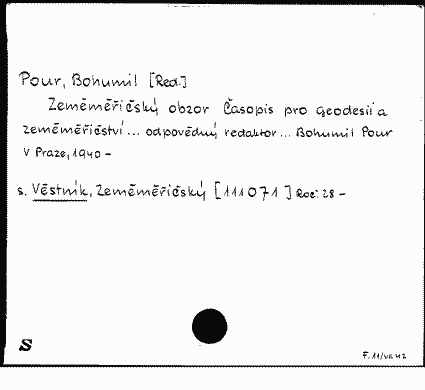 Pour, Bohumil [Red.]
Zeměměřičský obzor Časopis pro geodesii a
zeměměřičství... odpovědný redaktor... Bohumil Pour
V Praze, 1940 -
s. Věstník, Zeměměřičský [111071] Roč. 28 -
S
F. 11/VII 42